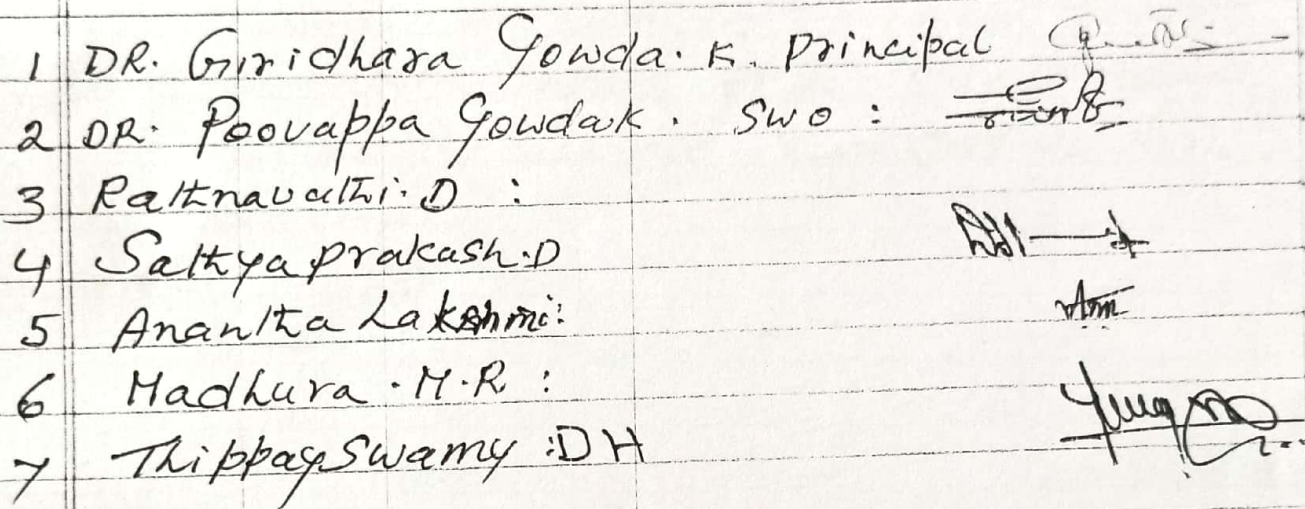 1 DR. Giridhara Gowda. K. Principal
2 DR. Poovappa Gowda K. SWO :
3 Rathnavathi. D :
4 Sathya prakash. D
5 Anantha Lakshmi:
6 Madhura. M.R :
7 Thippay Swamy :DH